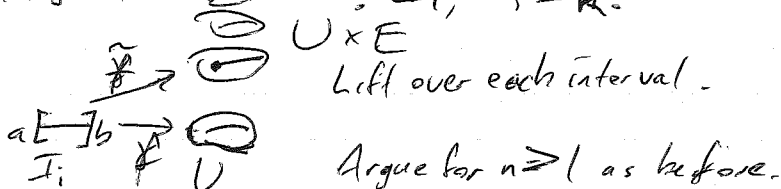 U × E
Lift over each interval.
a [—] b → U
I_i
Argue for n ≥ 1 as before.